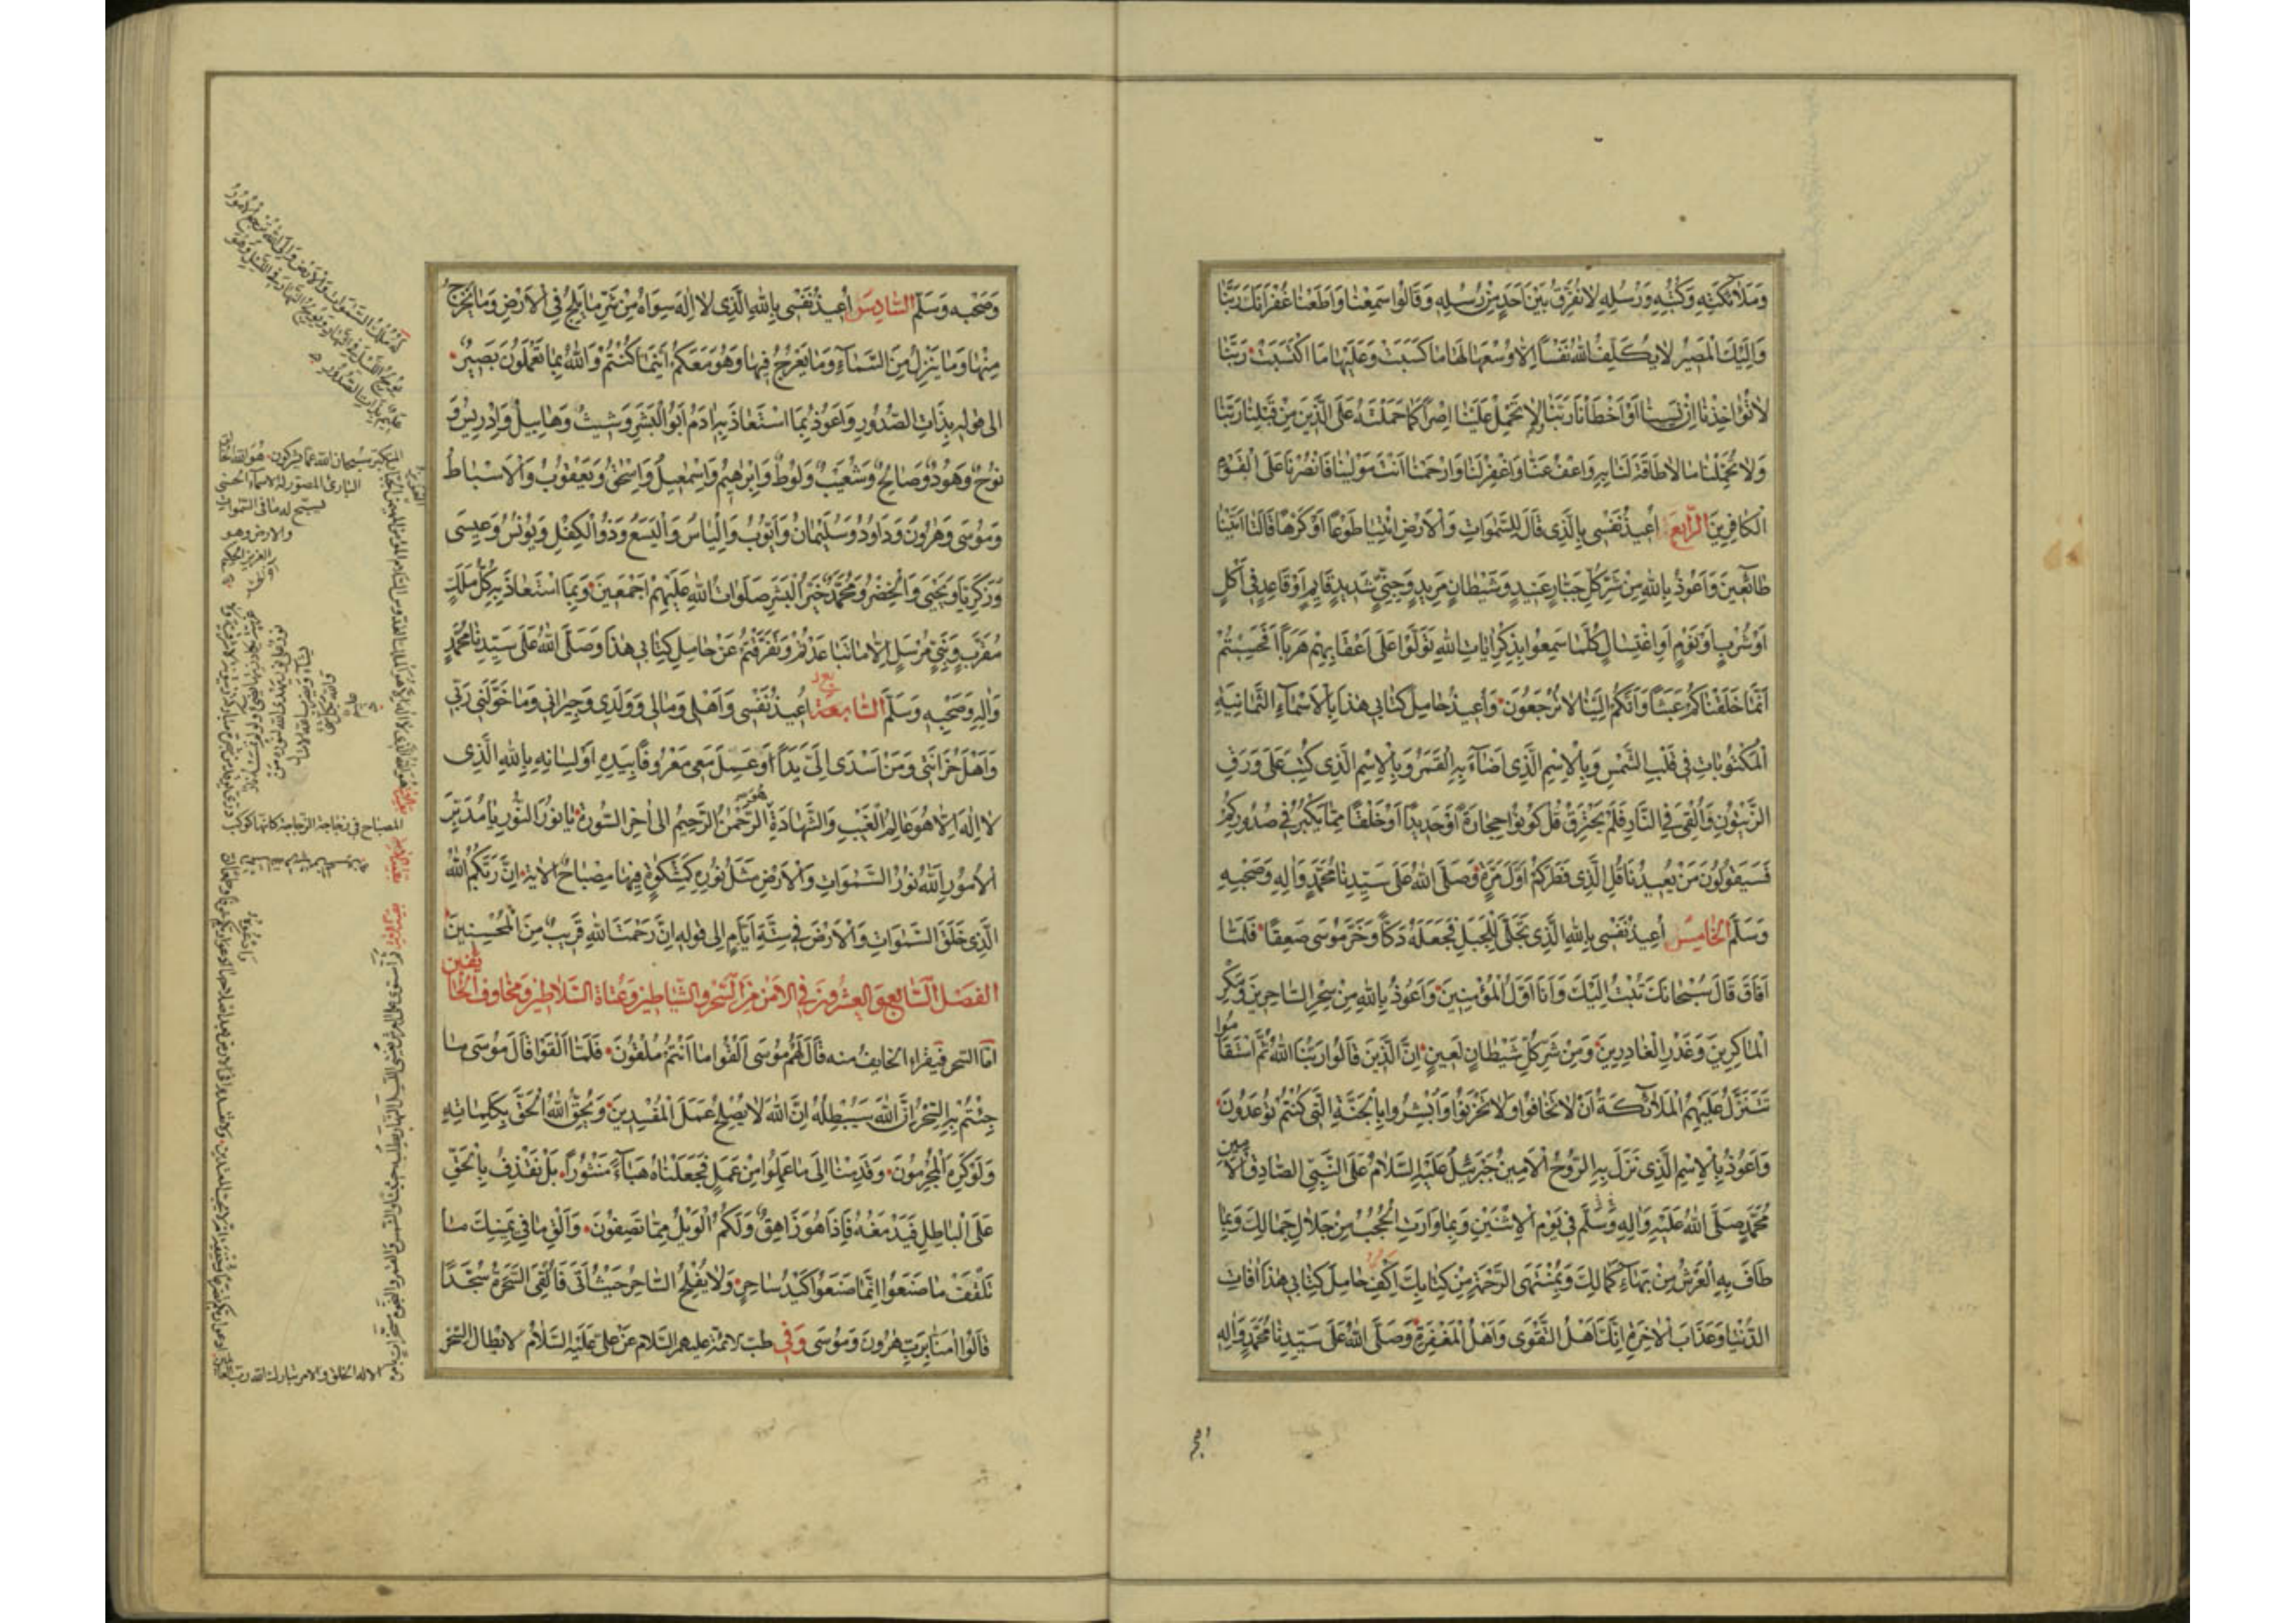 وَمَلَائِكَتِهِ وَكُتُبِهِ وَرُسُلِهِ لَا نُفَرِّقُ بَيْنَ أَحَدٍ مِنْ رُسُلِهِ وَقَالُوا سَمِعْنَا وَأَطَعْنَا غُفْرَانَكَ رَبَّنَا
وَإِلَيْكَ الْمَصِيرُ لَا يُكَلِّفُ اللَّهُ نَفْسًا إِلَّا وُسْعَهَا لَهَا مَا كَسَبَتْ وَعَلَيْهَا مَا اكْتَسَبَتْ رَبَّنَا
لَا تُؤَاخِذْنَا إِنْ نَسِينَا أَوْ أَخْطَأْنَا رَبَّنَا وَلَا تَحْمِلْ عَلَيْنَا إِصْرًا كَمَا حَمَلْتَهُ عَلَى الَّذِينَ مِنْ قَبْلِنَا رَبَّنَا
وَلَا تُحَمِّلْنَا مَا لَا طَاقَةَ لَنَا بِهِ وَاعْفُ عَنَّا وَاغْفِرْ لَنَا وَارْحَمْنَا أَنْتَ مَوْلَانَا فَانْصُرْنَا عَلَى الْقَوْمِ
الْكَافِرِينَ الرَّابِعُ أُعِيذُ نَفْسِي بِالَّذِي قَالَ لِلسَّمَوَاتِ وَالْأَرْضِ ائْتِيَا طَوْعًا أَوْ كَرْهًا قَالَتَا أَتَيْنَا
طَائِعِينَ وَأَعُوذُ بِاللَّهِ مِنْ شَرِّ كُلِّ جَبَّارٍ عَنِيدٍ وَشَيْطَانٍ مَرِيدٍ وَجِنِّيٍّ شَدِيدٍ قَائِمٍ أَوْ قَاعِدٍ فِي أَكْلٍ
أَوْ شُرْبٍ أَوْ نَوْمٍ أَوِ اغْتِسَالٍ كُلَّمَا سَمِعُوا بِذِكْرِ آيَاتِ اللَّهِ تَوَلَّوْا عَلَى أَعْقَابِهِمْ هَرَبًا أَفَحَسِبْتُمْ
أَنَّمَا خَلَقْنَاكُمْ عَبَثًا وَأَنَّكُمْ إِلَيْنَا لَا تُرْجَعُونَ وَأُعِيذُ حَامِلَ كِتَابِي هَذَا بِالْأَسْمَاءِ الثَّمَانِيَةِ
الْمَكْتُوبَاتِ فِي قَلْبِ الشَّمْسِ وَبِالْاِسْمِ الَّذِي أَضَاءَ بِهِ الْقَمَرُ وَبِالْاِسْمِ الَّذِي كُتِبَ عَلَى وَرَقِ
الزَّيْتُونِ وَأُلْقِيَ فِي النَّارِ فَلَمْ يَحْتَرِقْ قُلْ كُونُوا حِجَارَةً أَوْ حَدِيدًا أَوْ خَلْقًا مِمَّا يَكْبُرُ فِي صُدُورِكُمْ
فَسَيَقُولُونَ مَنْ يُعِيدُنَا قُلِ الَّذِي فَطَرَكُمْ أَوَّلَ مَرَّةٍ وَصَلَّى اللَّهُ عَلَى سَيِّدِنَا مُحَمَّدٍ وَآلِهِ وَصَحْبِهِ
وَسَلَّمَ الْخَامِسُ أُعِيذُ نَفْسِي بِاللَّهِ الَّذِي تَجَلَّى لِلْجَبَلِ فَجَعَلَهُ دَكًّا وَخَرَّ مُوسَى صَعِقًا فَلَمَّا
أَفَاقَ قَالَ سُبْحَانَكَ تُبْتُ إِلَيْكَ وَأَنَا أَوَّلُ الْمُؤْمِنِينَ وَأَعُوذُ بِاللَّهِ مِنْ سِحْرِ السَّاحِرِينَ وَمَكْرِ
الْمَاكِرِينَ وَغَدْرِ الْغَادِرِينَ وَمِنْ شَرِّ كُلِّ شَيْطَانٍ لَعِينٍ إِنَّ الَّذِينَ قَالُوا رَبُّنَا اللَّهُ ثُمَّ اسْتَقَامُوا
تَتَنَزَّلُ عَلَيْهِمُ الْمَلَائِكَةُ أَنْ لَا تَخَافُوا وَلَا تَحْزَنُوا وَأَبْشِرُوا بِالْجَنَّةِ الَّتِي كُنْتُمْ تُوعَدُونَ
وَأَعُوذُ بِالْاِسْمِ الَّذِي نَزَلَ بِهِ الرُّوحُ الْأَمِينُ جَبْرَئِيلُ عَلَيْهِ السَّلَامُ عَلَى النَّبِيِّ الصَّادِقِ الْأَمِينِ
مُحَمَّدٍ صَلَّى اللَّهُ عَلَيْهِ وَآلِهِ وَسَلَّمَ فِي يَوْمِ الْإِثْنَيْنِ وَبِمَا وَارَتِ الْحُجُبُ مِنْ جَلَالِ جَمَالِكَ وَبِمَا
طَافَ بِهِ الْعَرْشُ مِنْ بَهَاءِ كَمَالِكَ وَبِمُنْتَهَى الرَّحْمَةِ مِنْ كِتَابِكَ اكْفِ حَامِلَ كِتَابِي هَذَا آفَاتِ
الدُّنْيَا وَعَذَابَ الْآخِرَةِ إِنَّكَ أَهْلُ التَّقْوَى وَأَهْلُ الْمَغْفِرَةِ وَصَلَّى اللَّهُ عَلَى سَيِّدِنَا مُحَمَّدٍ وَآلِهِ
وَصَحْبِهِ وَسَلَّمَ السَّادِسُ أُعِيذُ نَفْسِي بِاللَّهِ الَّذِي لَا إِلَهَ سِوَاهُ مِنْ شَرِّ مَا يَلِجُ فِي الْأَرْضِ وَمَا يَخْرُجُ
مِنْهَا وَمَا يَنْزِلُ مِنَ السَّمَاءِ وَمَا يَعْرُجُ فِيهَا وَهُوَ مَعَكُمْ أَيْنَمَا كُنْتُمْ وَاللَّهُ بِمَا تَعْمَلُونَ بَصِيرٌ
إلى قوله بِذَاتِ الصُّدُورِ وَأَعُوذُ بِمَا اسْتَعَاذَ بِهِ آدَمُ أَبُو الْبَشَرِ وَشِيثُ وَهَابِيلُ وَإِدْرِيسُ وَ
نُوحٌ وَهُودٌ وَصَالِحٌ وَشُعَيْبٌ وَلُوطٌ وَإِبْرَهِيمُ وَإِسْمَعِيلُ وَإِسْحَقُ وَيَعْقُوبُ وَالْأَسْبَاطُ
وَمُوسَى وَهَرُونُ وَدَاوُدُ وَسُلَيْمَانُ وَأَيُّوبُ وَإِلْيَاسُ وَالْيَسَعُ وَذُو الْكِفْلِ وَيُونُسُ وَعِيسَى
وَزَكَرِيَّا وَيَحْيَى وَالْخِضْرُ وَمُحَمَّدٌ خَيْرُ الْبَشَرِ صَلَوَاتُ اللَّهِ عَلَيْهِمْ أَجْمَعِينَ وَبِمَا اسْتَعَاذَ بِهِ كُلُّ مَلَكٍ
مُقَرَّبٍ وَنَبِيٍّ مُرْسَلٍ إِلَّا مَا تَبَاعَدْتُمْ وَتَفَرَّقْتُمْ عَنْ حَامِلِ كِتَابِي هَذَا وَصَلَّى اللَّهُ عَلَى سَيِّدِنَا مُحَمَّدٍ
وَآلِهِ وَصَحْبِهِ وَسَلَّمَ السَّابِعَةُ أُعِيذُ نَفْسِي وَأَهْلِي وَمَالِي وَوَلَدِي وَجِيرَانِي وَمَا خَوَّلَنِي رَبِّي
وَأَهْلَ حُزَانَتِي وَمَنْ أَسْدَى إِلَيَّ يَدًا أَوْ عَمِلَ مَعِي مَعْرُوفًا بِيَدِهِ أَوْ لِسَانِهِ بِاللَّهِ الَّذِي
لَا إِلَهَ إِلَّا هُوَ عَالِمُ الْغَيْبِ وَالشَّهَادَةِ هُوَ الرَّحْمَنُ الرَّحِيمُ إلى آخِرِ السُّورَةِ يَا نُورَ النُّورِ يَا مُدَبِّرَ
الْأُمُورِ اللَّهُ نُورُ السَّمَوَاتِ وَالْأَرْضِ مَثَلُ نُورِهِ كَمِشْكَوةٍ فِيهَا مِصْبَاحٌ الآية إِنَّ رَبَّكُمُ اللَّهُ
الَّذِي خَلَقَ السَّمَوَاتِ وَالْأَرْضَ فِي سِتَّةِ أَيَّامٍ إلى قوله إِنَّ رَحْمَتَ اللَّهِ قَرِيبٌ مِنَ الْمُحْسِنِينَ
الفصل السابع والعشرون في الأمن من السحر والشياطين وعتاة السلاطين ومخاوف الخائفين
أما السحر فيقراء الخايف منه قَالَ لَهُمْ مُوسَى أَلْقُوا مَا أَنْتُمْ مُلْقُونَ فَلَمَّا أَلْقَوْا قَالَ مُوسَى مَا
جِئْتُمْ بِهِ السِّحْرُ إِنَّ اللَّهَ سَيُبْطِلُهُ إِنَّ اللَّهَ لَا يُصْلِحُ عَمَلَ الْمُفْسِدِينَ وَيُحِقُّ اللَّهُ الْحَقَّ بِكَلِمَاتِهِ
وَلَوْ كَرِهَ الْمُجْرِمُونَ وَقَدِمْنَا إِلَى مَا عَمِلُوا مِنْ عَمَلٍ فَجَعَلْنَاهُ هَبَاءً مَنْثُورًا بَلْ نَقْذِفُ بِالْحَقِّ
عَلَى الْبَاطِلِ فَيَدْمَغُهُ فَإِذَا هُوَ زَاهِقٌ وَلَكُمُ الْوَيْلُ مِمَّا تَصِفُونَ وَأَلْقِ مَا فِي يَمِينِكَ
تَلْقَفْ مَا صَنَعُوا إِنَّمَا صَنَعُوا كَيْدُ سَاحِرٍ وَلَا يُفْلِحُ السَّاحِرُ حَيْثُ أَتَى فَأُلْقِيَ السَّحَرَةُ سُجَّدًا
قَالُوا آمَنَّا بِرَبِّ هَرُونَ وَمُوسَى وَفِي طب الائمة عليهم السلام عَنْ عَلِيٍّ عَلَيْهِ السَّلَامُ لابطال السحر
له ملك السموات والارض والى الله ترجع الامور
يولج الليل في النهار ويولج النهار في الليل وهو
عليم بذات الصدور
المتكبر سبحان الله عما يشركون هو الله الخالق
البارئ المصور له الاسماء الحسنى
يسبح له ما في السموات
والارض وهو
العزيز الحكيم
المصباح في زجاجة الزجاجة كانها كوكب
الا له الخلق والامر تبارك الله رب